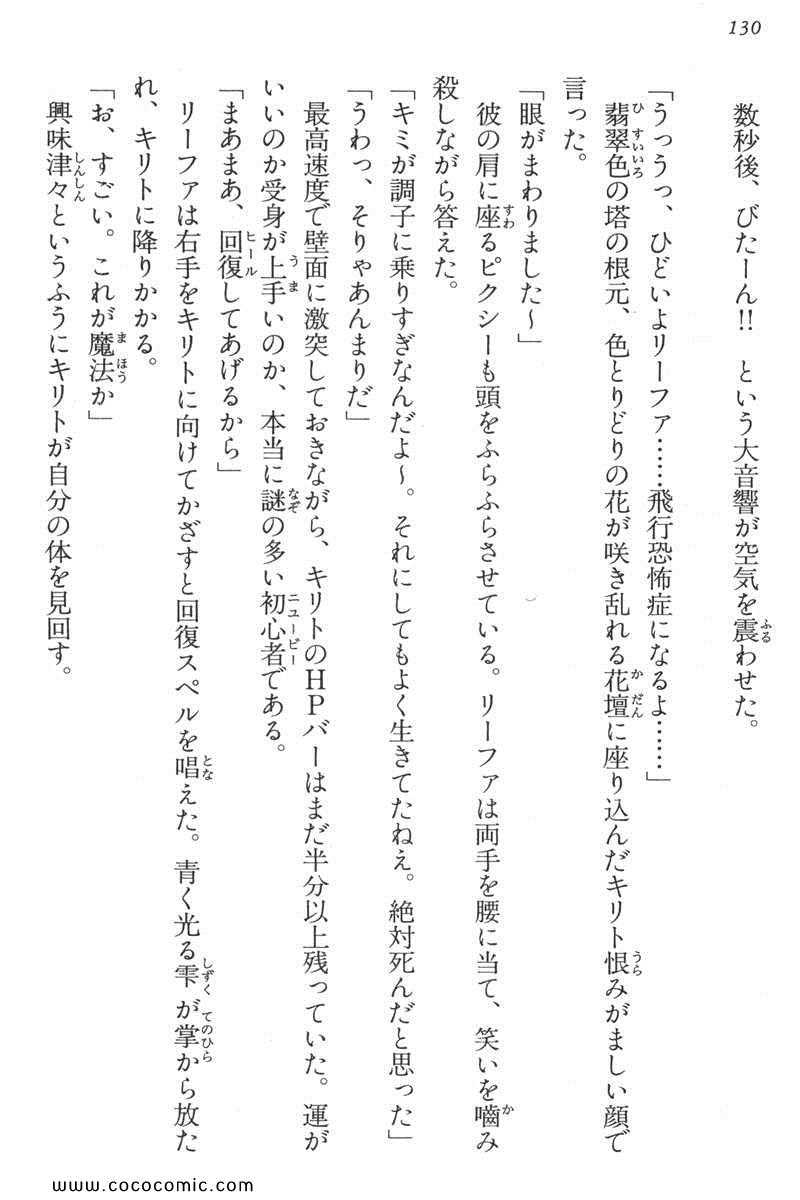 130
数秒後、びたーん!!　という大音響が空気を震わせた。
「うっうっ、ひどいよリーファ……飛行恐怖症になるよ……」
翡翠色の塔の根元、色とりどりの花が咲き乱れる花壇に座り込んだキリト恨みがましい顔で
言った。
「眼がまわりました～」
彼の肩に座るピクシーも頭をふらふらさせている。リーファは両手を腰に当て、笑いを嚙み
殺しながら答えた。
「キミが調子に乗りすぎなんだよ～。それにしてもよく生きてたねえ。絶対死んだと思った」
「うわっ、そりゃあんまりだ」
最高速度で壁面に激突しておきながら、キリトのHPバーはまだ半分以上残っていた。運が
いいのか受身が上手いのか、本当に謎の多い初心者である。
「まあまあ、回復してあげるから」
リーファは右手をキリトに向けてかざすと回復スペルを唱えた。青く光る雫が掌から放た
れ、キリトに降りかかる。
「お、すごい。これが魔法か」
興味津々というふうにキリトが自分の体を見回す。
www.cococomic.com